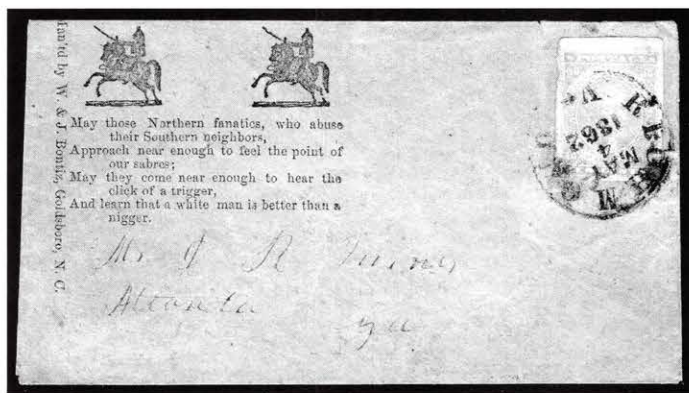 Man'fd by W. & J. Bonitz, Goldsboro, N. C.
May those Northern fanatics, who abuse
their Southern neighbors,
Approach near enough to feel the point of
our sabres;
May they come near enough to hear the
click of a trigger,
And learn that a white man is better than a
nigger.
RICHMOND
VA.
MAY
4
1862
Mr J R Turner
Atlanta
Ga